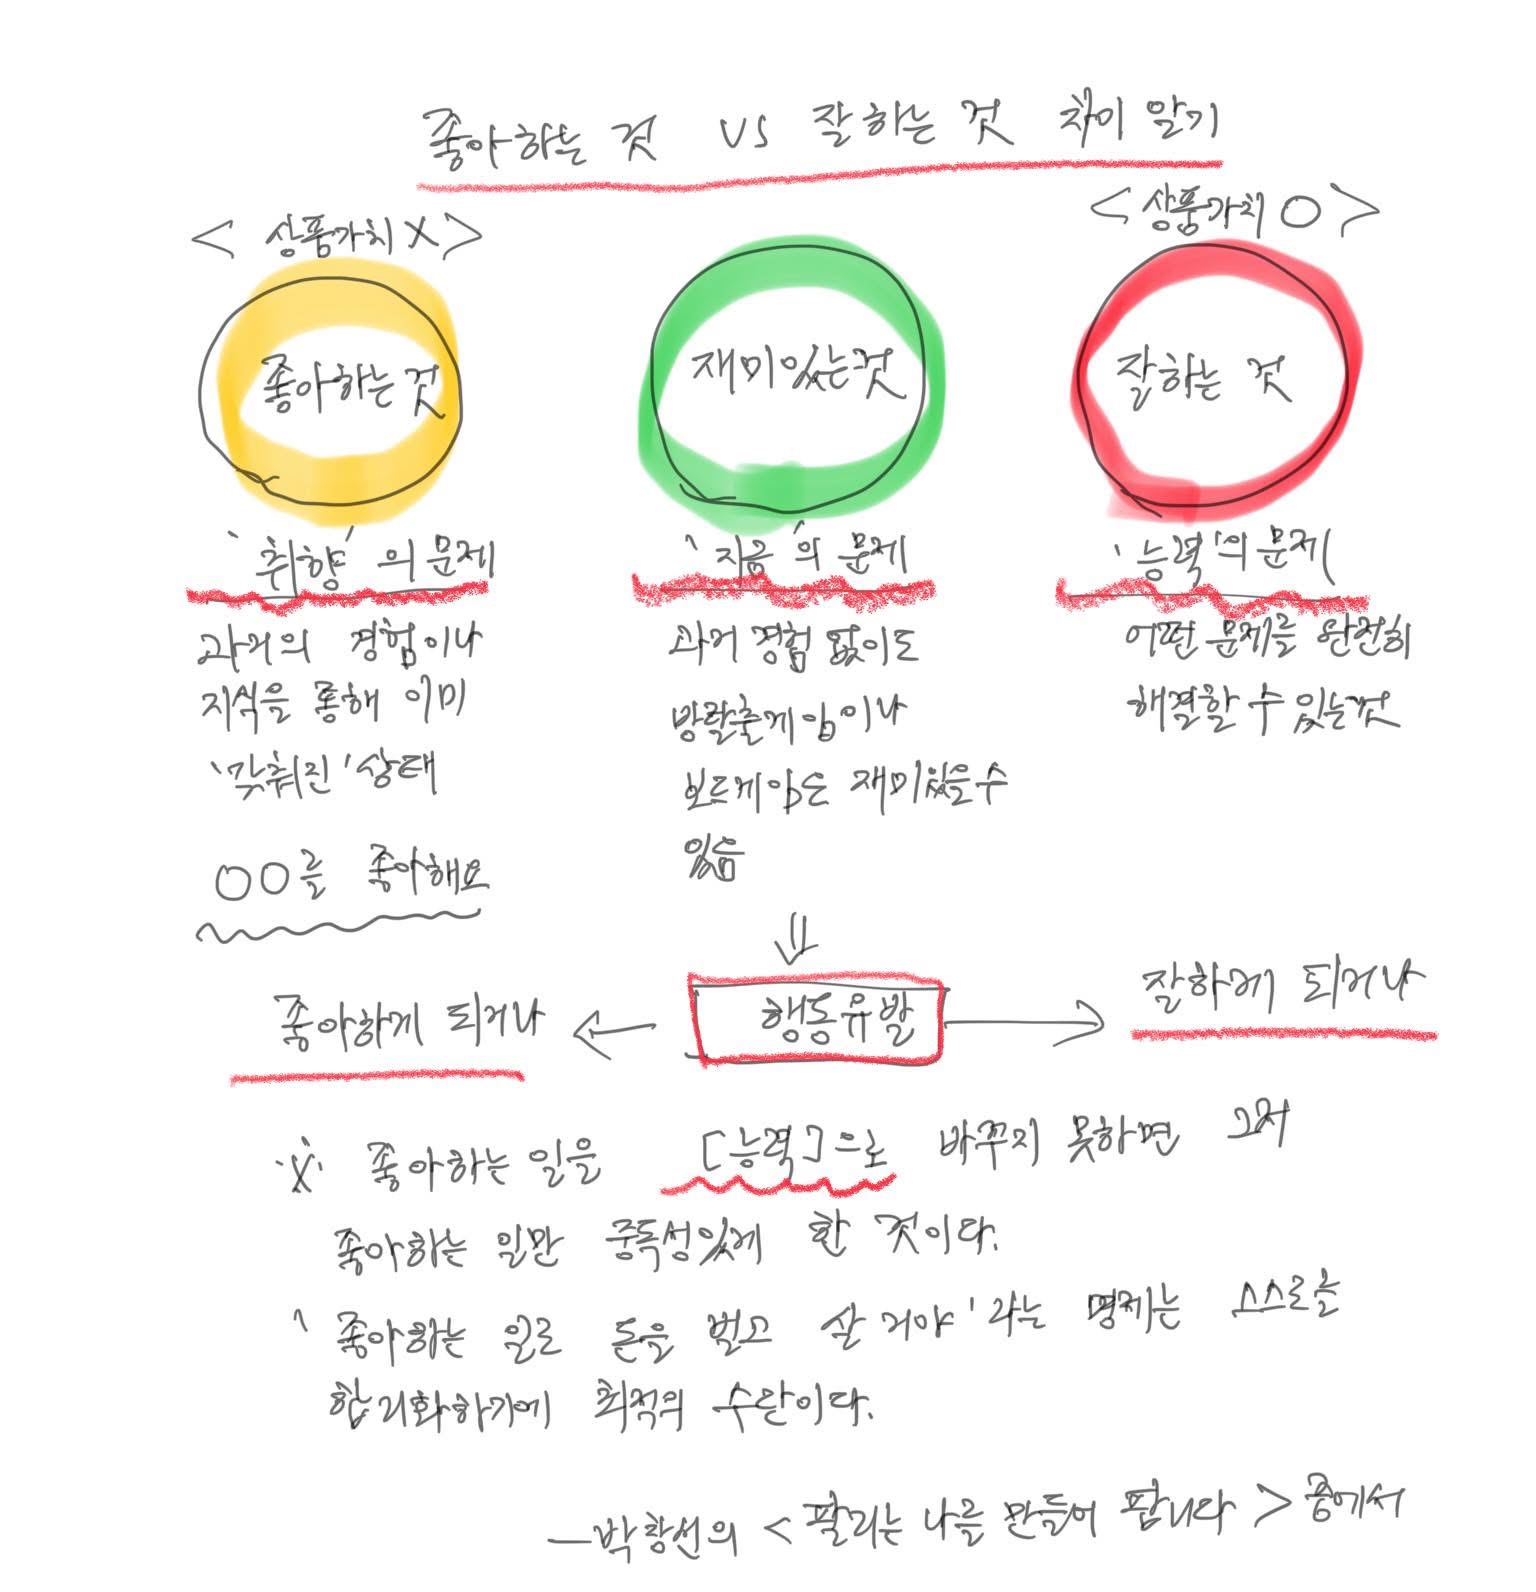 좋아하는 것 vs 잘하는 것 차이 알기
< 상품가치 X >
< 상품가치 O >
좋아하는 것
재미있는 것
잘하는 것
'취향'의 문제
과거의 경험이나
지식을 통해 이미
'맞춰진' 상태
OO를 좋아해요
'지금'의 문제
과거 경험 없이도
방탈출게임이나
보드게임은 재미있을 수
있음
'능력'의 문제
어떤 문제를 완전히
해결할 수 있는 것
⇓
좋아하게 되거나 ← 행동유발 → 잘하게 되거나
※ 좋아하는 일을 [능력]으로 바꾸지 못하면 그저
좋아하는 일만 중독성있게 한 것이다.
'좋아하는 일로 돈을 벌고 살거야'라는 명제는 스스로를
합리화하기에 최적의 수단이다.
—박창선의 <팔리는 나를 만들어 팝니다> 중에서